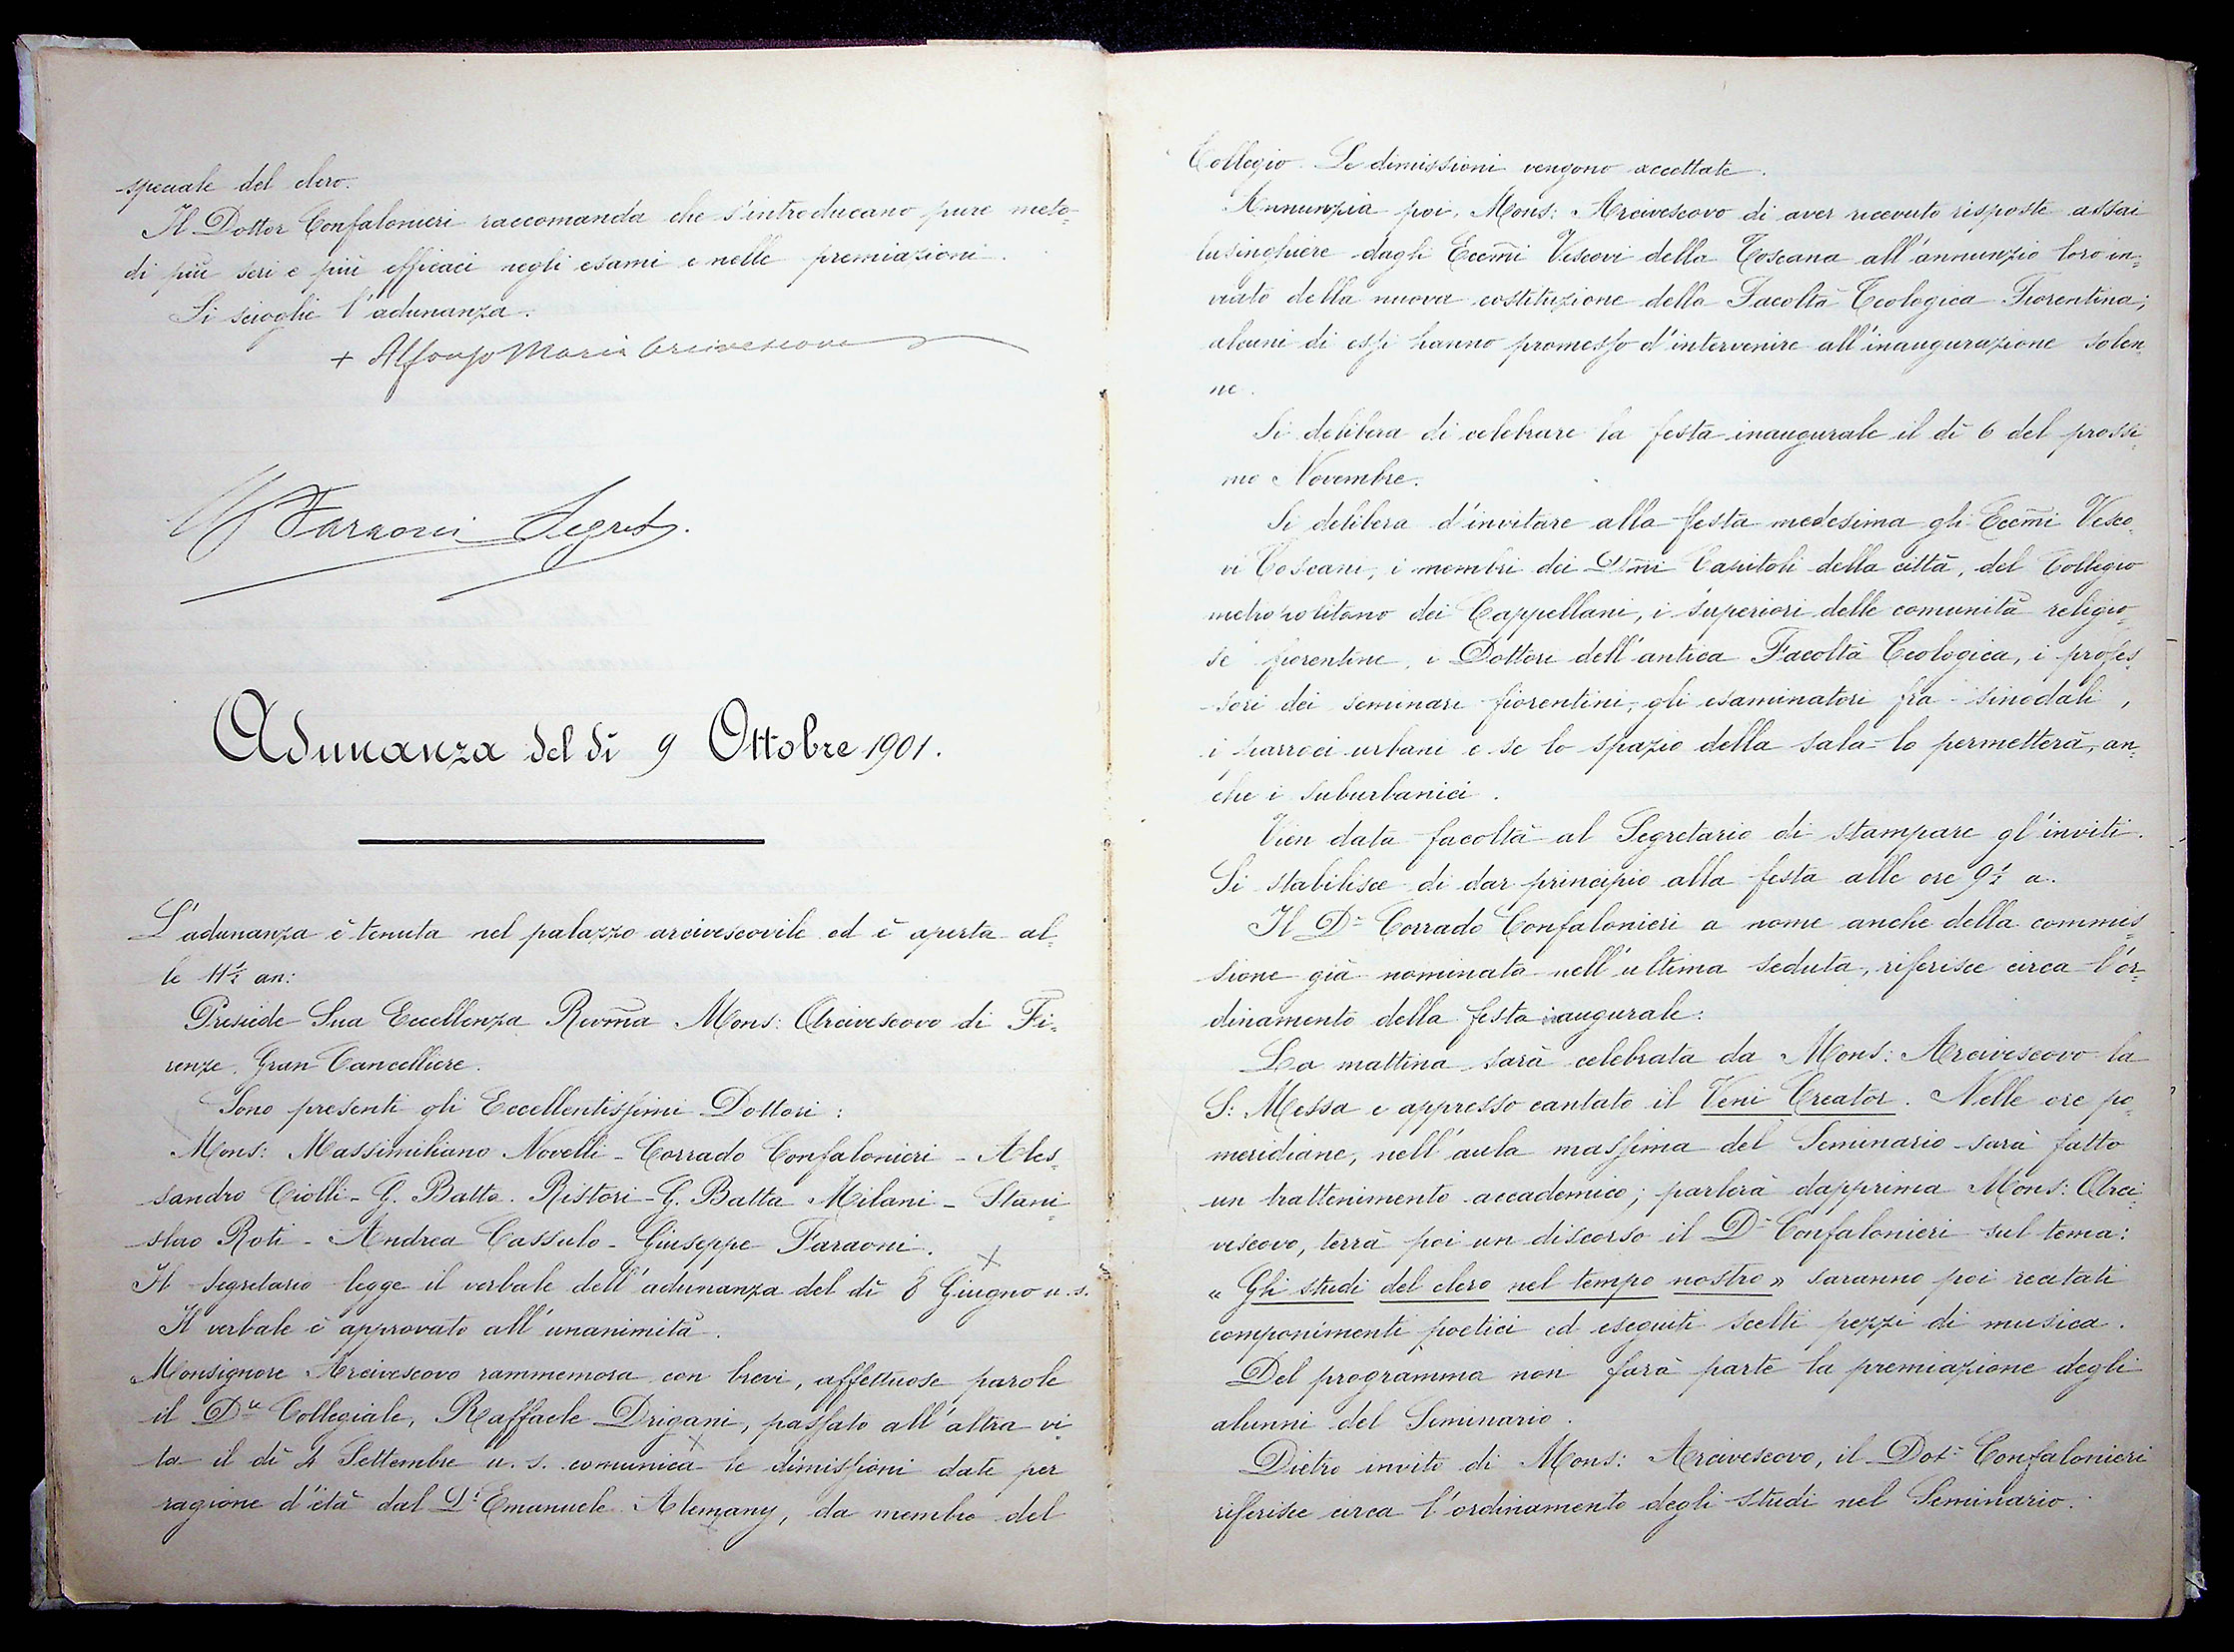 speciale del clero.
Il Dottor Confalonieri raccomanda che s'introducano pure meto-
di più seri e più efficaci negli esami e nelle premiazioni.
Si scioglie l'adunanza.
+ Alfonso Maria Arcivescovo
G Faraoni Segret.
Adunanza del dì 9 Ottobre 1901.
L'adunanza è tenuta nel palazzo arcivescovile ed è aperta al-
le 11½ an:
Presiede Sua Eccellenza Revm̃a Mons: Arcivescovo di Fi-
renze, Gran Cancelliere.
Sono presenti gli Eccellentissimi Dottori:
Mons: Massimiliano Novelli - Corrado Confalonieri - Ales-
sandro Ciolli - G. Batta. Ristori - G. Batta Milani - Stani-
slao Roti - Andrea Cassulo - Giuseppe Faraoni.
Il Segretario legge il verbale dell'adunanza del dì 8 Giugno u.s.
Il verbale è approvato all'unanimità.
Monsignore Arcivescovo rammemora con brevi, affettuose parole
il Dre Collegiale, Raffaele Drigani, passato all'altra vi-
ta il dì 4 Settembre u. s. comunica le dimissioni date per
ragione d'età dal Dr Emanuele Alemany, da membro del
Collegio. Le dimissioni vengono accettate.
Annunzia poi, Mons: Arcivescovo di aver ricevuto risposte assai
lusinghiere dagli Eccm̃i Vescovi della Toscana all'annunzio loro in-
viato della nuova costituzione della Facoltà Teologica Fiorentina;
alcuni di essi hanno promesso d'intervenire all'inaugurazione solen-
ne.
Si delibera di celebrare la festa inaugurale il dì 6 del prossi-
mo Novembre.
Si delibera d'invitare alla festa medesima gli Eccm̃i Vesco-
vi Toscani, i membri dei Capitoli della città, del Collegio
metropolitano dei Cappellani, i superiori delle comunità religio-
se fiorentine, i Dottori dell'antica Facoltà Teologica, i profes-
sori dei seminari fiorentini, gli esaminatori fra-sinodali,
i parroci urbani e se lo spazio della sala lo permetterà, an-
che i suburbanici.
Vien data facoltà al Segretario di stampare gl'inviti.
Si stabilisce di dar principio alla festa alle ore 9½ a.
Il Dr Corrado Confalonieri a nome anche della commis-
sione già nominata nell'ultima seduta, riferisce circa l'or-
dinamento della festa inaugurale:
La mattina sarà celebrata da Mons: Arcivescovo la
S: Messa e appresso cantato il Veni Creator. Nelle ore po-
meridiane, nell'aula massima del Seminario sarà fatto
un trattenimento accademico; parlerà dapprima Mons: Arci-
vescovo, terrà poi un discorso il Dr Confalonieri sul tema:
« Gli studi del clero nel tempo nostro » saranno poi recitati
componimenti poetici ed eseguiti scelti pezzi di musica.
Del programma non farà parte la premiazione degli
alunni del Seminario.
Dietro invito di Mons: Arcivescovo, il Dotr Confalonieri
riferisce circa l'ordinamento degli studi nel Seminario.